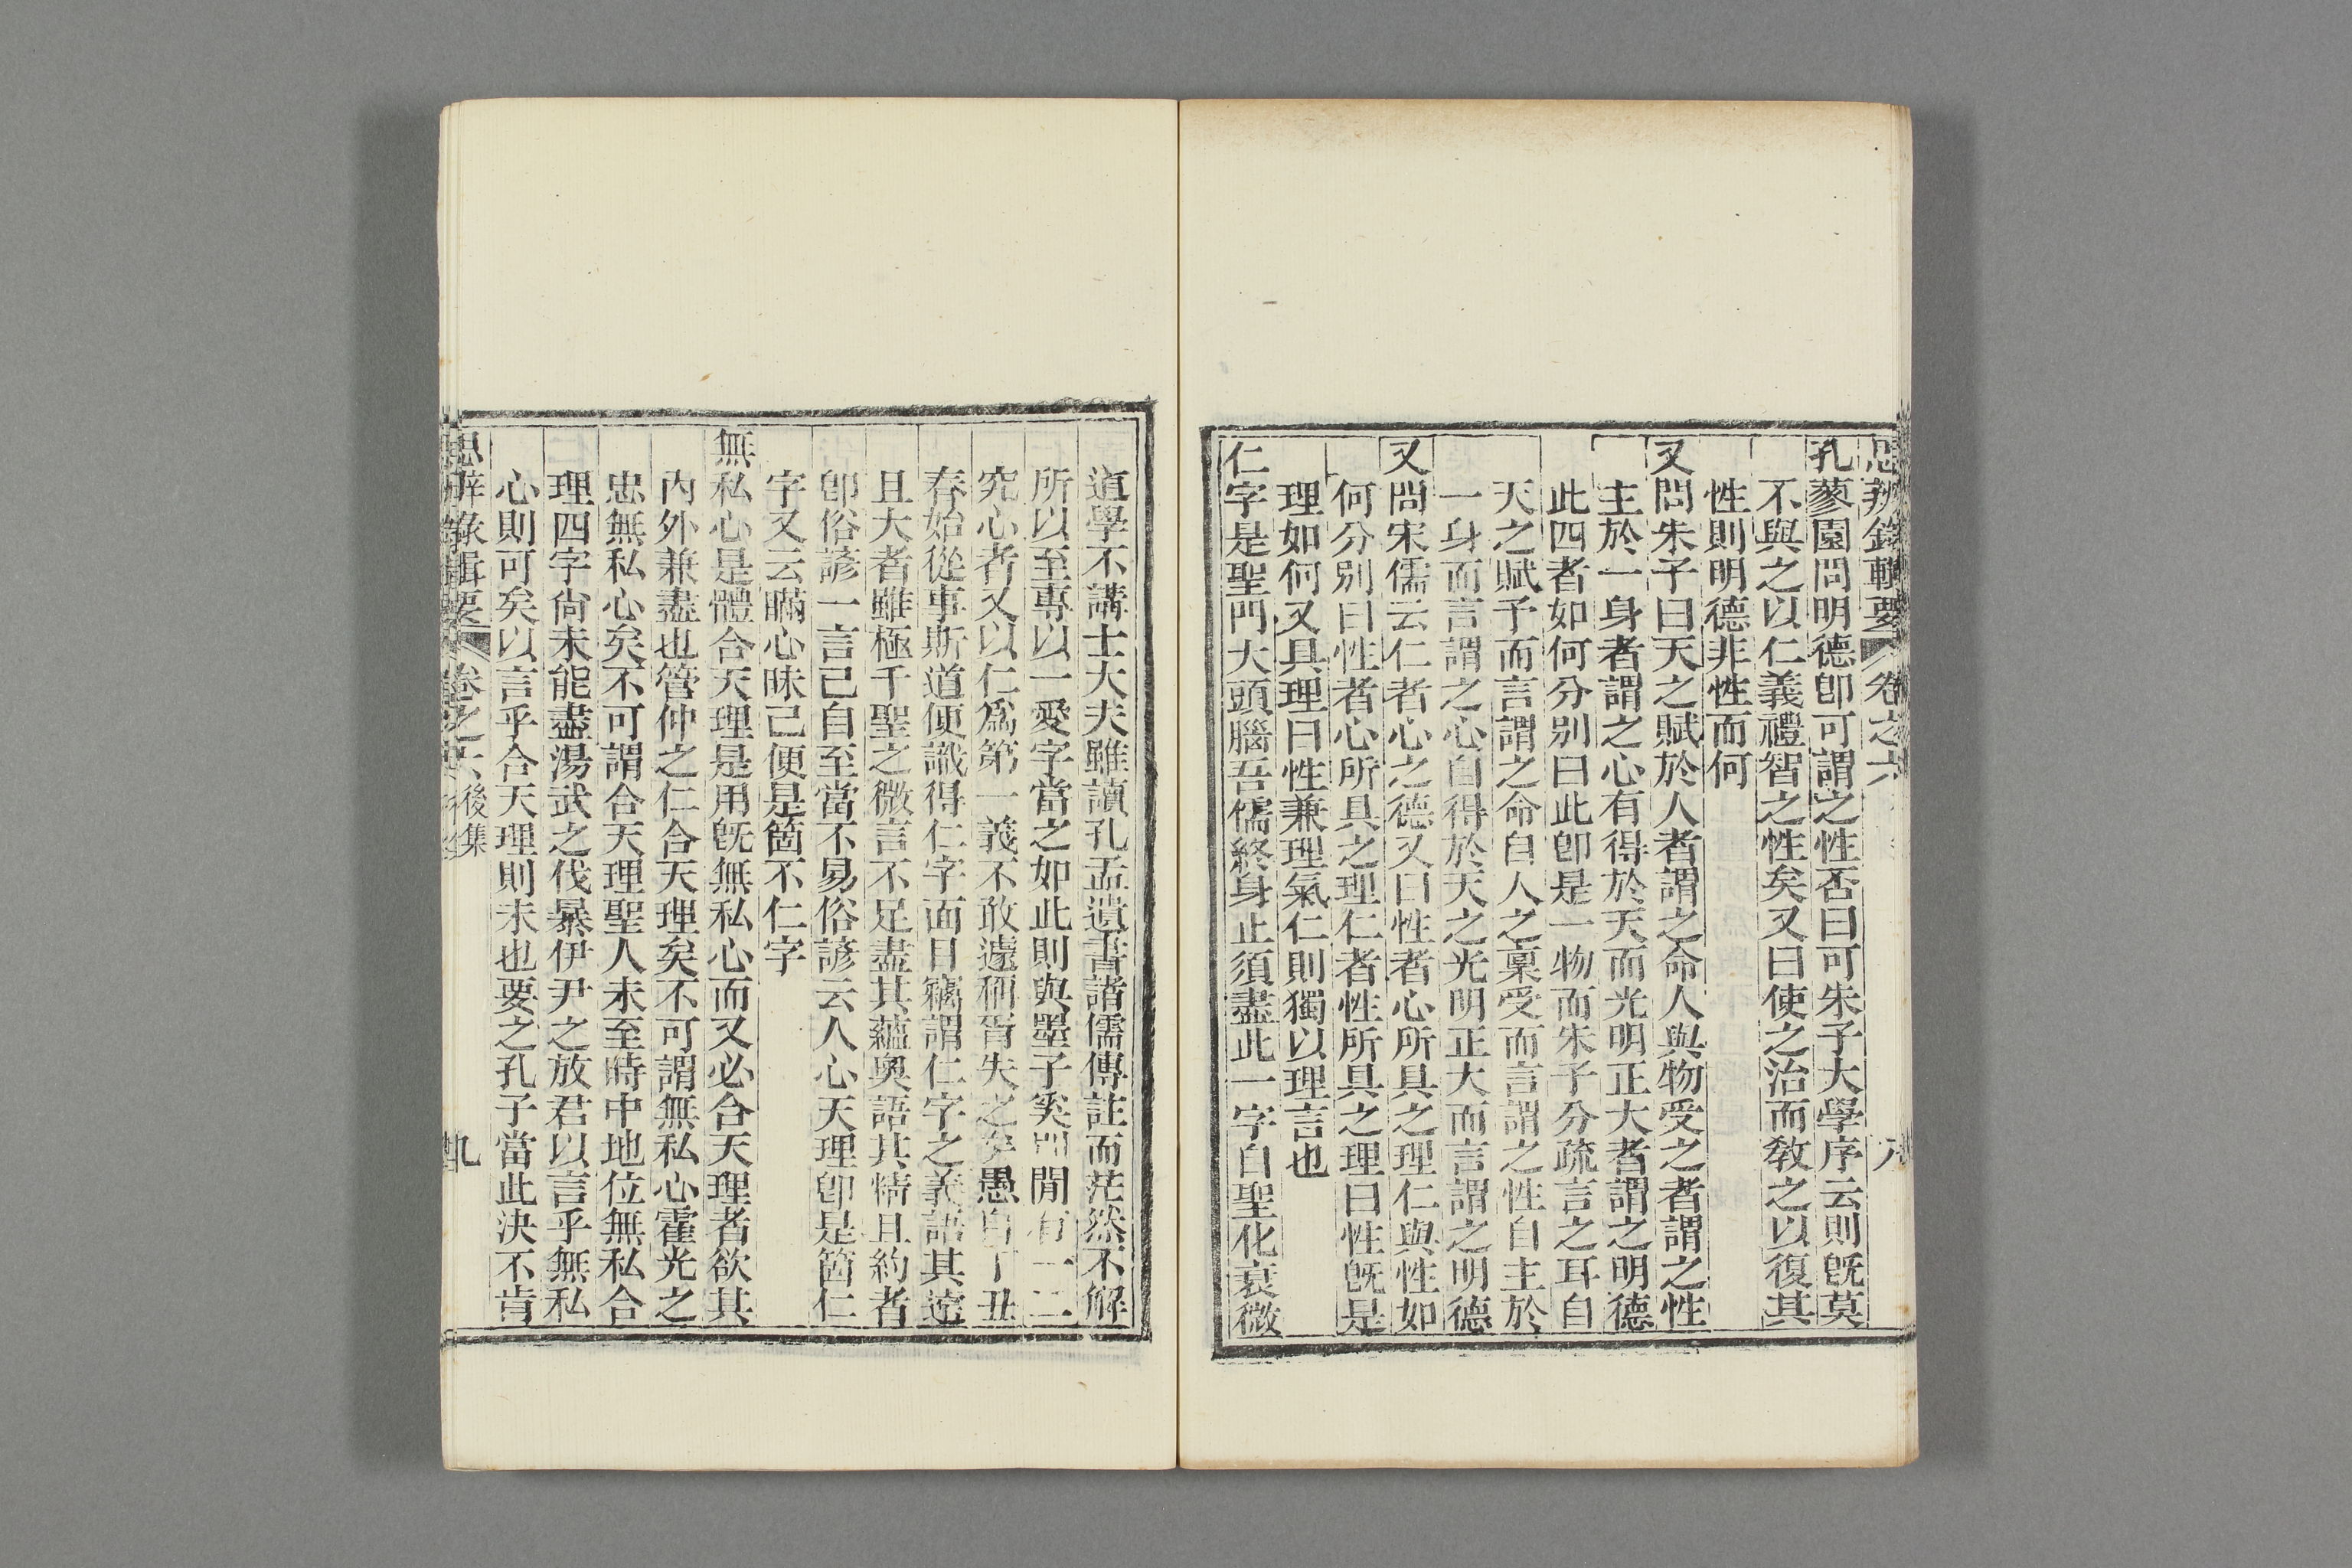 思辨錄輯要 卷之六 八
孔蓼園問明德卽可謂之性否曰可朱子大學序云則旣莫
不與之以仁義禮智之性矣又曰使之治而敎之以復其
性則明德非性而何
又問朱子曰天之賦於人者謂之命人與物受之者謂之性
主於一身者謂之心有得於天而光明正大者謂之明德
此四者如何分別曰此卽是一物而朱子分疏言之耳自
天之賦予而言謂之命自人之稟受而言謂之性自主於
一身而言謂之心自得於天之光明正大而言謂之明德
又問宋儒云仁者心之德又曰性者心所具之理仁與性如
何分別曰性者心所具之理仁者性所具之理曰性旣是
理如何又具理曰性兼理氣仁則獨以理言也
仁字是聖門大頭腦吾儒終身止須盡此一字自聖化衰微
道學不講士大夫雖讀孔孟遺書諸儒傳註而茫然不解
所以至專以一愛字當之如此則與墨子奚 閒有一二
究心者又以仁爲第一義不敢遽稱胥失之矣愚自丁丑
春始從事斯道便識得仁字面目竊謂仁字之義語其遠
且大者雖極千聖之微言不足盡其蘊奧語其精且約者
卽俗諺一言已自至當不易俗諺云人心天理卽是箇仁
字又云瞞心昧己便是箇不仁字
無私心是體合天理是用旣無私心而又必合天理者欲其
內外兼盡也管仲之仁合天理矣不可謂無私心霍光之
忠無私心矣不可謂合天理聖人未至時中地位無私合
理四字尙未能盡湯武之伐暴伊尹之放君以言乎無私
心則可矣以言乎合天理則未也要之孔子當此決不肯
思辨錄輯要 卷之六 後集 九